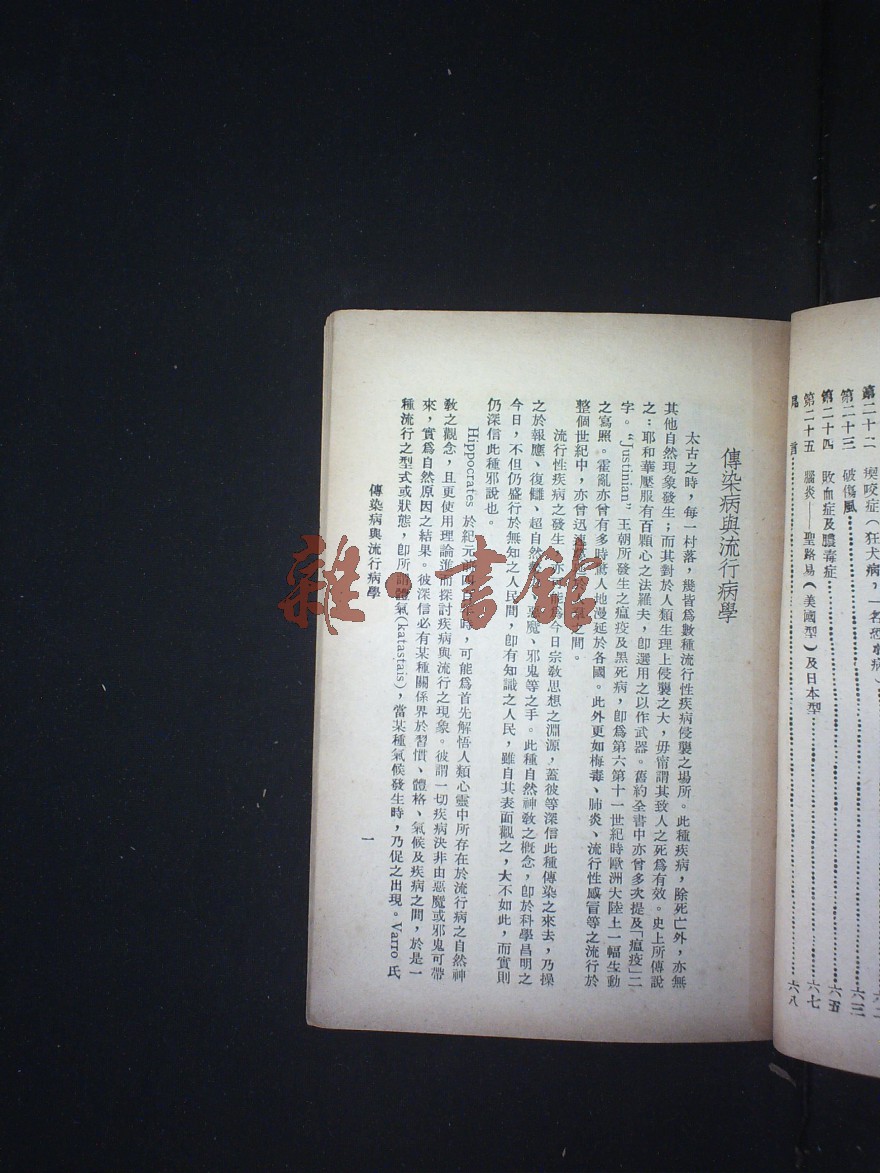 第二十二 瘈咬症(狂犬病,一名恐水病)
第二十三 破傷風………六三
第二十四 敗血症及膿毒症………六五
第二十五 腦炎——聖路易(美國型)及日本型………六七
尾 言………六八
傳染病與流行病學
太古之時,每一村落,幾皆爲數種流行性疾病侵襲之場所。此種疾病,除死亡外,亦無
其他自然現象發生;而其對於人類生理上侵襲之大,毋甯謂其致人之死爲有效。史上所傳說
之:耶和華壓服有百顆心之法羅夫,卽選用之以作武器。舊約全書中亦曾多次提及「瘟疫」二
字。“Justinian”王朝所發生之瘟疫及黑死病,卽爲第六第十一世紀時歐洲大陸土一幅生動
之寫照。霍亂亦曾有多時驚人地漫延於各國。此外更如梅毒、肺炎、流行性感冒等之流行於
整個世紀中,亦曾迅速蔓延於人羣之間。
流行性疾病之發生,亦可能爲今日宗敎思想之淵源,蓋彼等深信此種傳染之來去,乃操
之於報應、復讎、超自然勢力、惡魔、邪鬼等之手。此種自然神敎之概念,卽於科學昌明之
今日,不但仍盛行於無知之人民間,卽有知識之人民,雖自其表面觀之,大不如此,而實則
仍深信此種邪說也。
Hippocrates 於紀元前四百年時,可能爲首先解悟人類心靈中所存在於流行病之自然神
敎之觀念,且更使用理論準而探討疾病與流行之現象。彼謂一切疾病決非由惡魔或邪鬼可帶
來,實爲自然原因之結果。彼深信必有某種關係界於習慣、體格、氣候及疾病之間,於是一
種流行之型式或狀態,卽所謂體氣(katastais),當某種氣候發生時,乃促之出現。Varro 氏
傳染病與流行病學
一
雜·書館